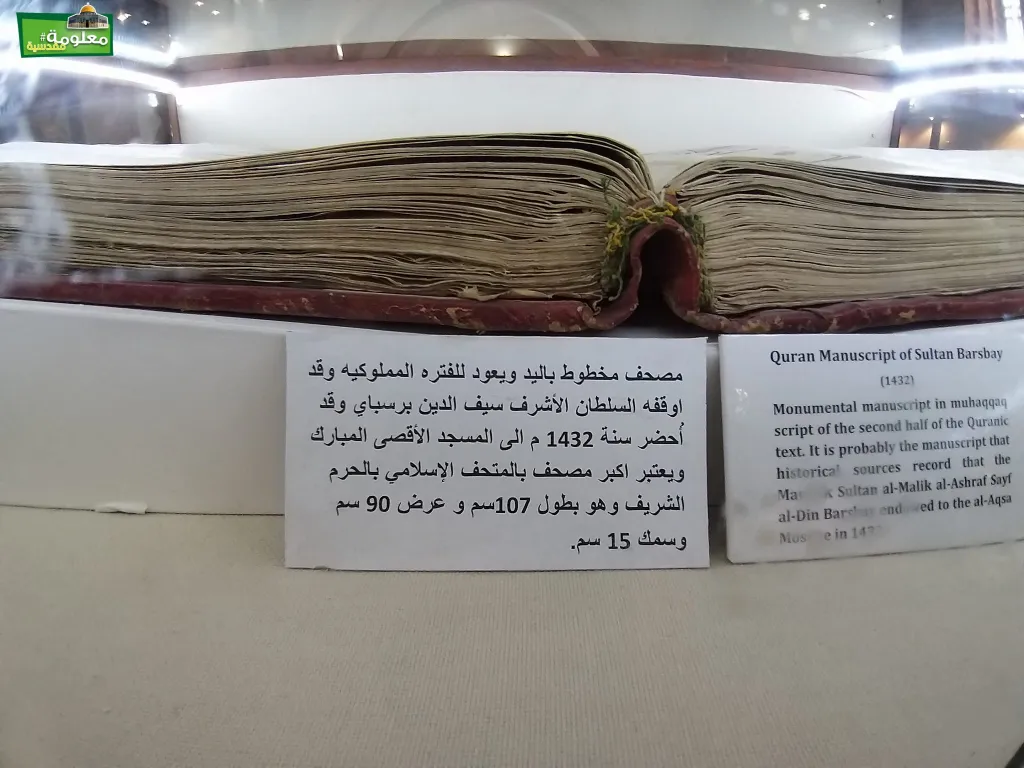 #معلومة
مقدسية
مصحف مخطوط باليد ويعود للفتره المملوكيه وقد
اوقفه السلطان الأشرف سيف الدين برسباي وقد
أُحضر سنة 1432 م الى المسجد الأقصى المبارك
ويعتبر اكبر مصحف بالمتحف الإسلامي بالحرم
الشريف وهو بطول 107سم و عرض 90 سم
وسمك 15 سم.
Quran Manuscript of Sultan Barsbay
(1432)
Monumental manuscript in muhaqqaq
script of the second half of the Quranic
text. It is probably the manuscript that
historical sources record that the
Sultan al-Malik al-Ashraf Sayf
al-Din Barsbay endowed to the al-Aqsa
Mosque in